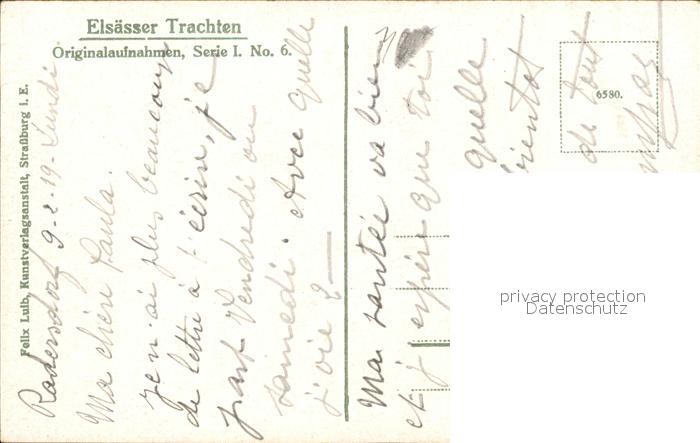 Elsässer Trachten
Originalaufnahmen, Serie I. No. 6.
Felix Luib, Kunstverlagsanstalt, Straßburg i. E.
6580.
Radersdorf 9-2-19. Lundi
Ma chère Paula.
Je n'ai plus beaucoup
de lettre à t'écrire, je
part Vendredi ou
samedi. Avec quelle
joie
Ma santée va bien
et j'espère que toi
quelle
bientot
de tout
privacy protection
Datenschutz